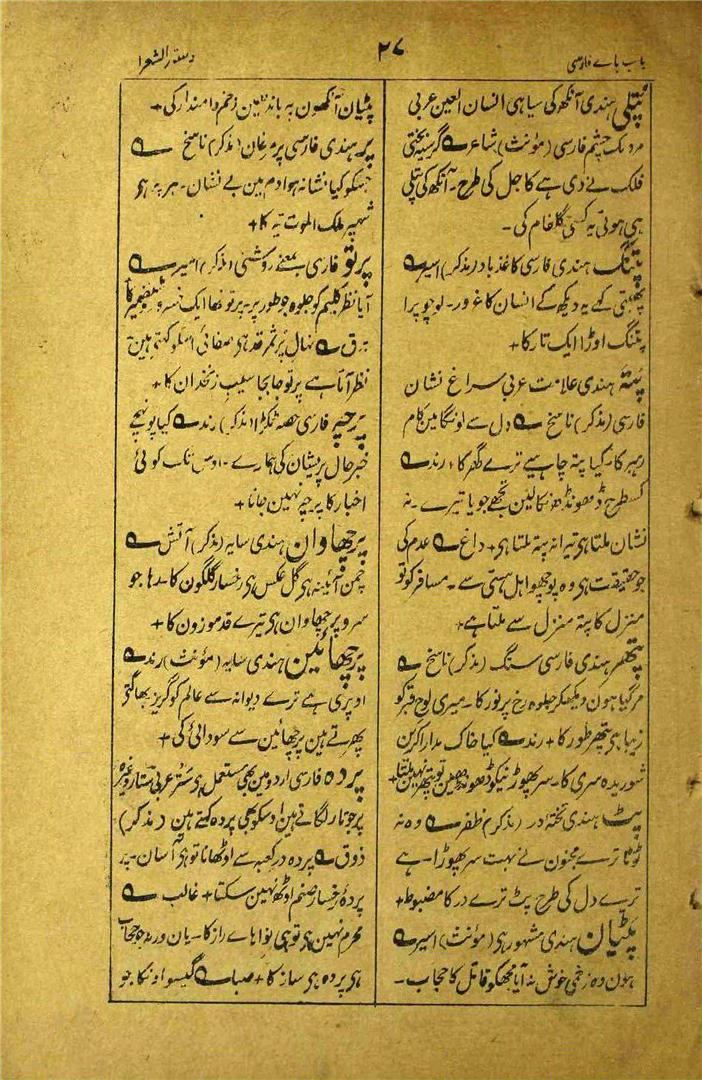 باب بائے فارسی
۲۷
دستور الشعرا
پتلی ہندی آنکھ کی سیاہی انسان العین عربی
مردمک چشم فارسی (مؤنث) شاعر ؎ گر سیہ بختی
فلک نے دی ہے کاجل کی طرح۔ آنکھ کی پتلی
ہی ہوتی یہ کسی گلفام کی۔
پتنگ ہندی فارسی کاغذ باد (مذکر) اسیر ؎
پھبتی کہے یہ دیکھ کے انسان کا غرور۔ لو چوپرا
پتنگ اوڑا ایک تار کا+
پتہ ہندی علامت عربی سراغ نشان
فارسی (مذکر) ناسخ ؎ دل سے لونگا مین کام
رہبر کا۔ کیا پتہ چاہیے ترے گھر کا+ رند ؎
کسطرح ڈھونڈھ نکالین تجھے جویا تیرے۔ نہ
نشان ملتا ہی تیرا نہ پتہ ملتا ہی+ داغ ؎ عدم کی
جو حقیقت ہی وہ پوچھو اہل ہستی سے۔ مسافر کو تو
منزل کا پتہ منزل سے ملتا ہے+
پتھر ہندی فارسی سنگ (مذکر) ناسخ ؎
مر گیا ہون دیکھکر جلوہ رخ پر نور کا۔ میری لوح قبر کو
زیبا ہی پتھر طور کا+ رند ؎ کیا خاک مدارا کرین
شوریدہ سری کا۔ سر پھوڑنیکو ڈھونڈھین تو پتھر نہین ملتا+
پٹ ہندی تختہ در (مذکر) ظفر ؎ وہ نہ
ٹوٹا ترے مجنون نے بہت سر پھوڑا۔ ہے
ترے دل کی طرح پٹ ترے در کا مضبوط+
پٹیان ہندی مشہور ہی (مؤنث) اسیر ؎
ہون وہ زخمی خوش نہ آیا مجھکو قاتل کا حجاب۔
پٹیان آنکھون پہ باندھین زخم دامندار کی+
پر ہندی فارسی پر مرغان (مذکر) ناسخ ؎
جسکو کیا نشانہ ہوا دم مین بے نشان۔ ہر پر ہی
شہپر ملک الموت تیر کا+
پرتو فارسی بمعنے روشنی (مذکر) اسیر ؎
آیا نظر کلیم کو جلوہ جو طور پر۔ پرتو تھا ایک
برق ؎ نہال پر ثمر قد ہی صفائی اسکو کہتے ہین
نظر آتا ہے پرتو جابجا سیب زنخدان کا+
پرچہ فارسی حصہ ٹکڑا (مذکر) رند ؎ کیا پونہچے
خبر حال پریشان کی ہمارے۔ اوس تک کوئی
اخبار کا پرچہ نہین جاتا+
پرچھاوان ہندی سایہ (مذکر) آتش ؎
چمن آئینہ ہی گل عکس ہی رخسار گلگون کا۔ رہا جو
سرو پرچھاوان ہی تیرے قد موزون کا+
پرچھائین ہندی سایہ (مؤنث) رند ؎
اوپری ہے ترے دیوانہ سے عالم کو گریز بھاگتی
پھرتے ہین پرچھائین سے سودائی کی+
پردہ فارسی اردو مین بھی مستعمل ہی ستر عربی ستار وغیرہ
پر جو تار لگاتے ہین اوسکو بھی پردہ کہتے ہین (مذکر)
ذوق ؎ پردہ در کعبہ سے اوٹھانا تو ہی آسان۔ پر
پردۂ رخسار صنم اوٹھ نہین سکتا+ غالب ؎
محرم نہین ہی تو ہی نوا ہاے راز کا۔ یان ورنہ جو حجاب
ہی پردہ ہی ساز کا+ صبا ؎ گیسو اونکا جو